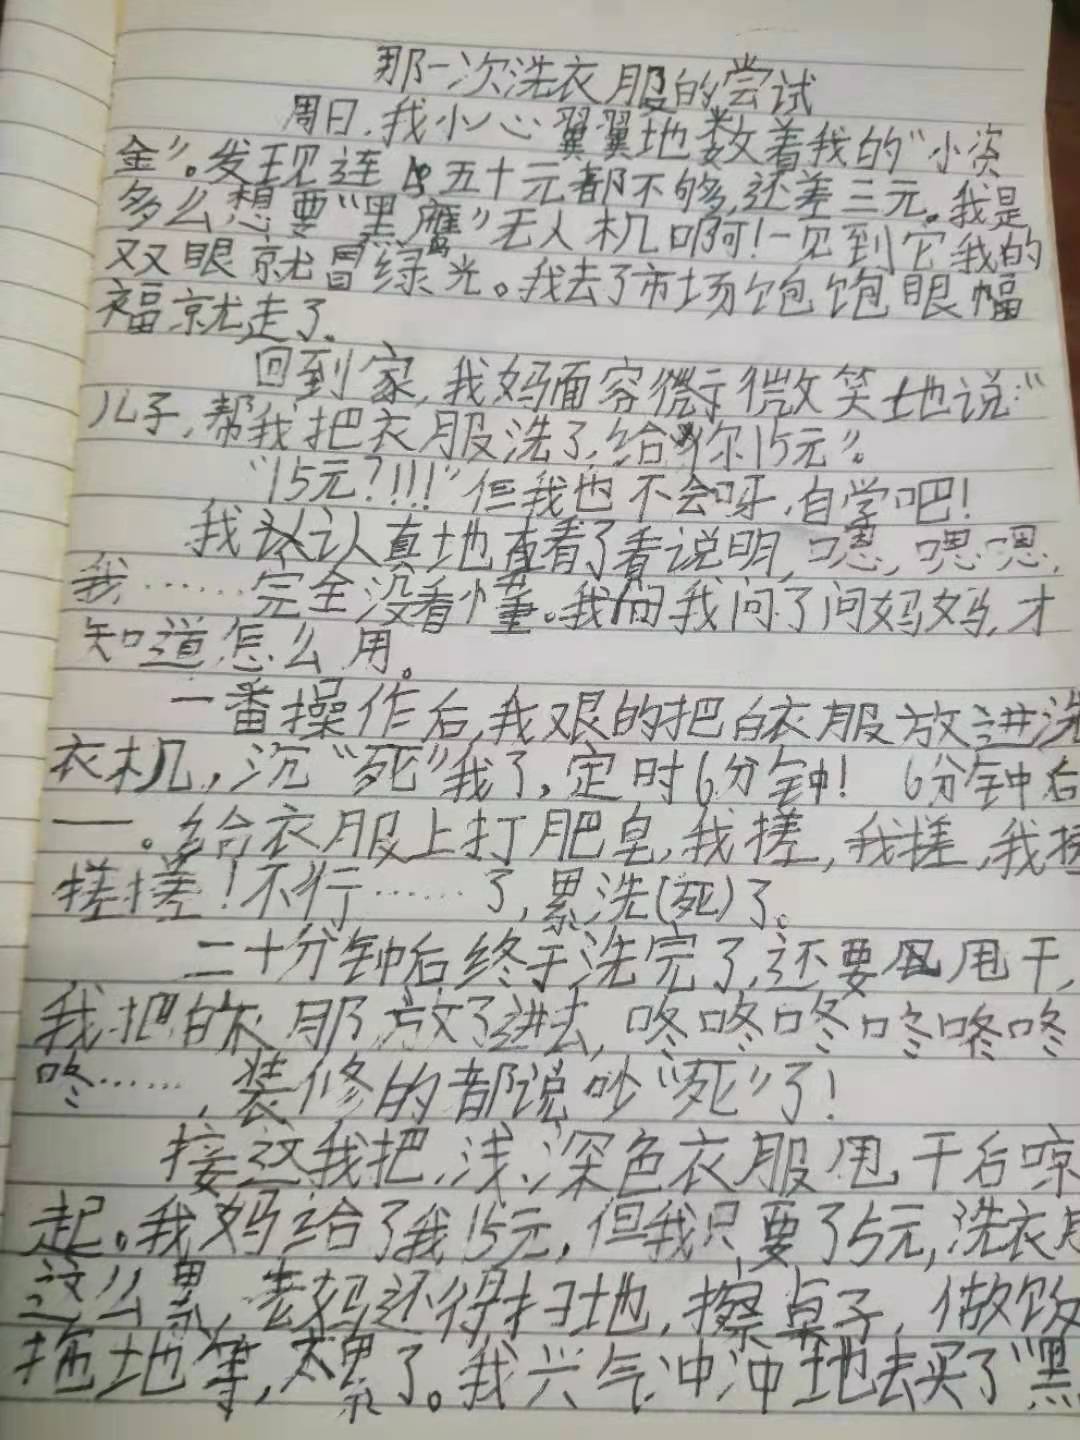 那一次洗衣服的尝试
周日,我小心翼翼地数着我的“小资
金”。发现连五十元都不够,还差三元。我是
多么想要“黑鹰”无人机啊!一见到它我的
双眼就冒绿光。我去了市场饱饱眼幅
福就走了。
回到家,我妈面容微微笑地说:“
儿子,帮我把衣服洗了,给你15元”。
“15元?!!!”但我也不会呀,自学吧!
我认认真地查看了看说明,嗯,嗯嗯,
我……完全没看懂。我问我问了问妈妈,才
知道怎么用。
一番操作后,我艰的把白衣服放进洗
衣机,沉“死”我了,定时6分钟! 6分钟后
——。给衣服上打肥皂,我搓,我搓,我搓
搓搓!不行……了,累洗(死)了。
二十分钟后终于洗完了,还要甩干,
我把白衣服放了进去,咚咚咚咚咚咚
咚……,装修的都说吵“死”了!
接这我把,浅、深色衣服甩干后晾
起。我妈给了我15元,但我只要了5元,洗衣服
这么累,老妈还得扫地,擦桌子,做饭
拖地等,太累了。我兴气冲冲地去买了“黑